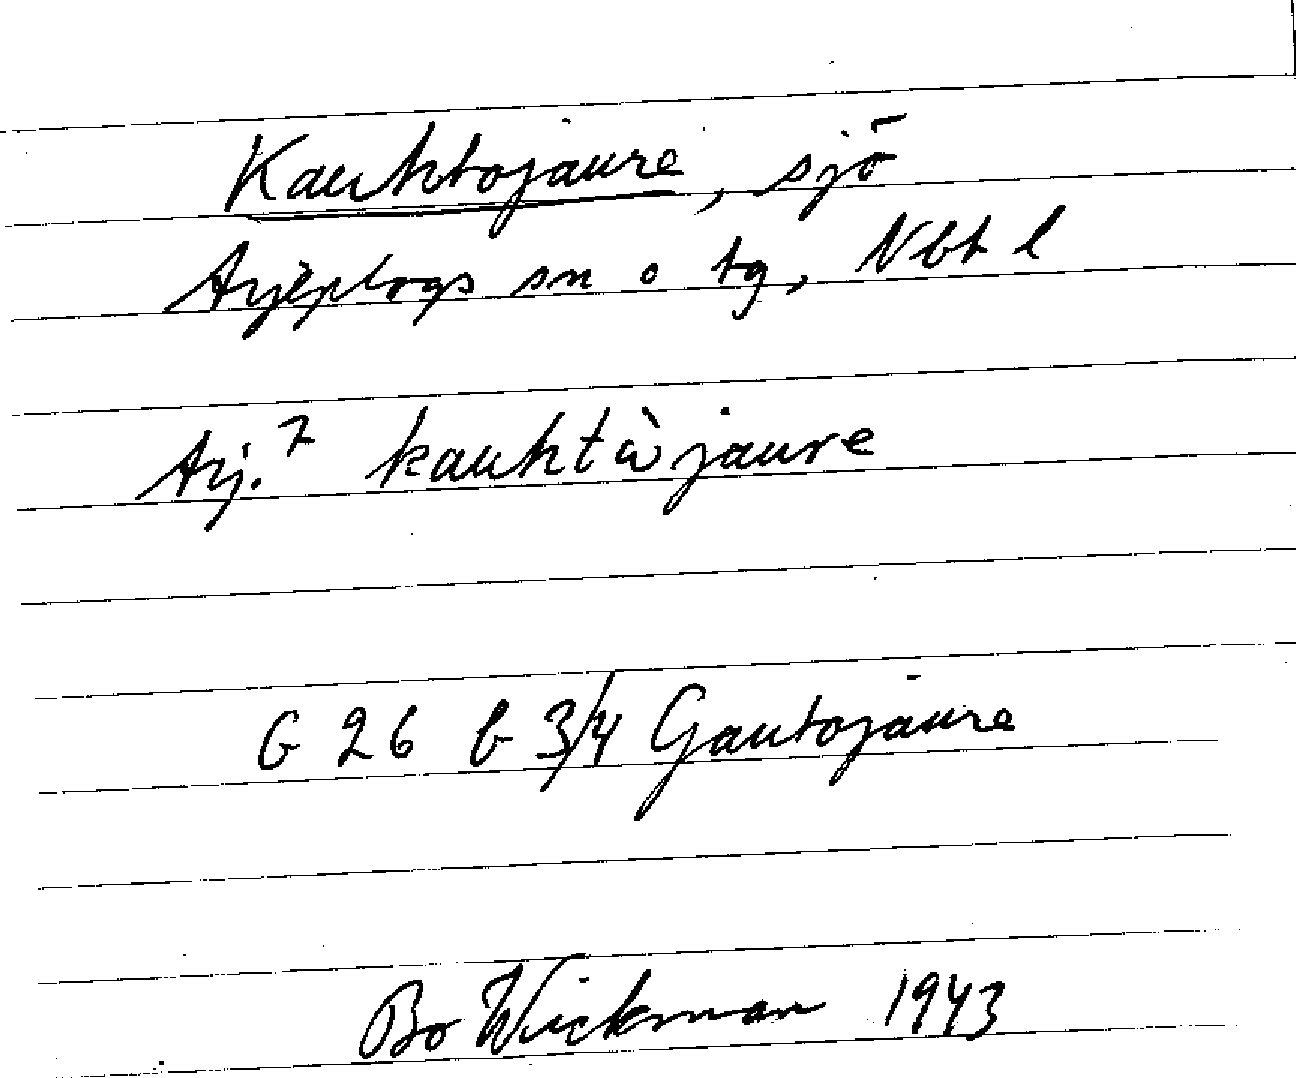 Kauhtojaure, sjö
Arjeplogs sn o tg, Nbt l
Arj.7 kauhtàjaure
G 26 b 3/4 Gautojaure
Bo Wickman 1943